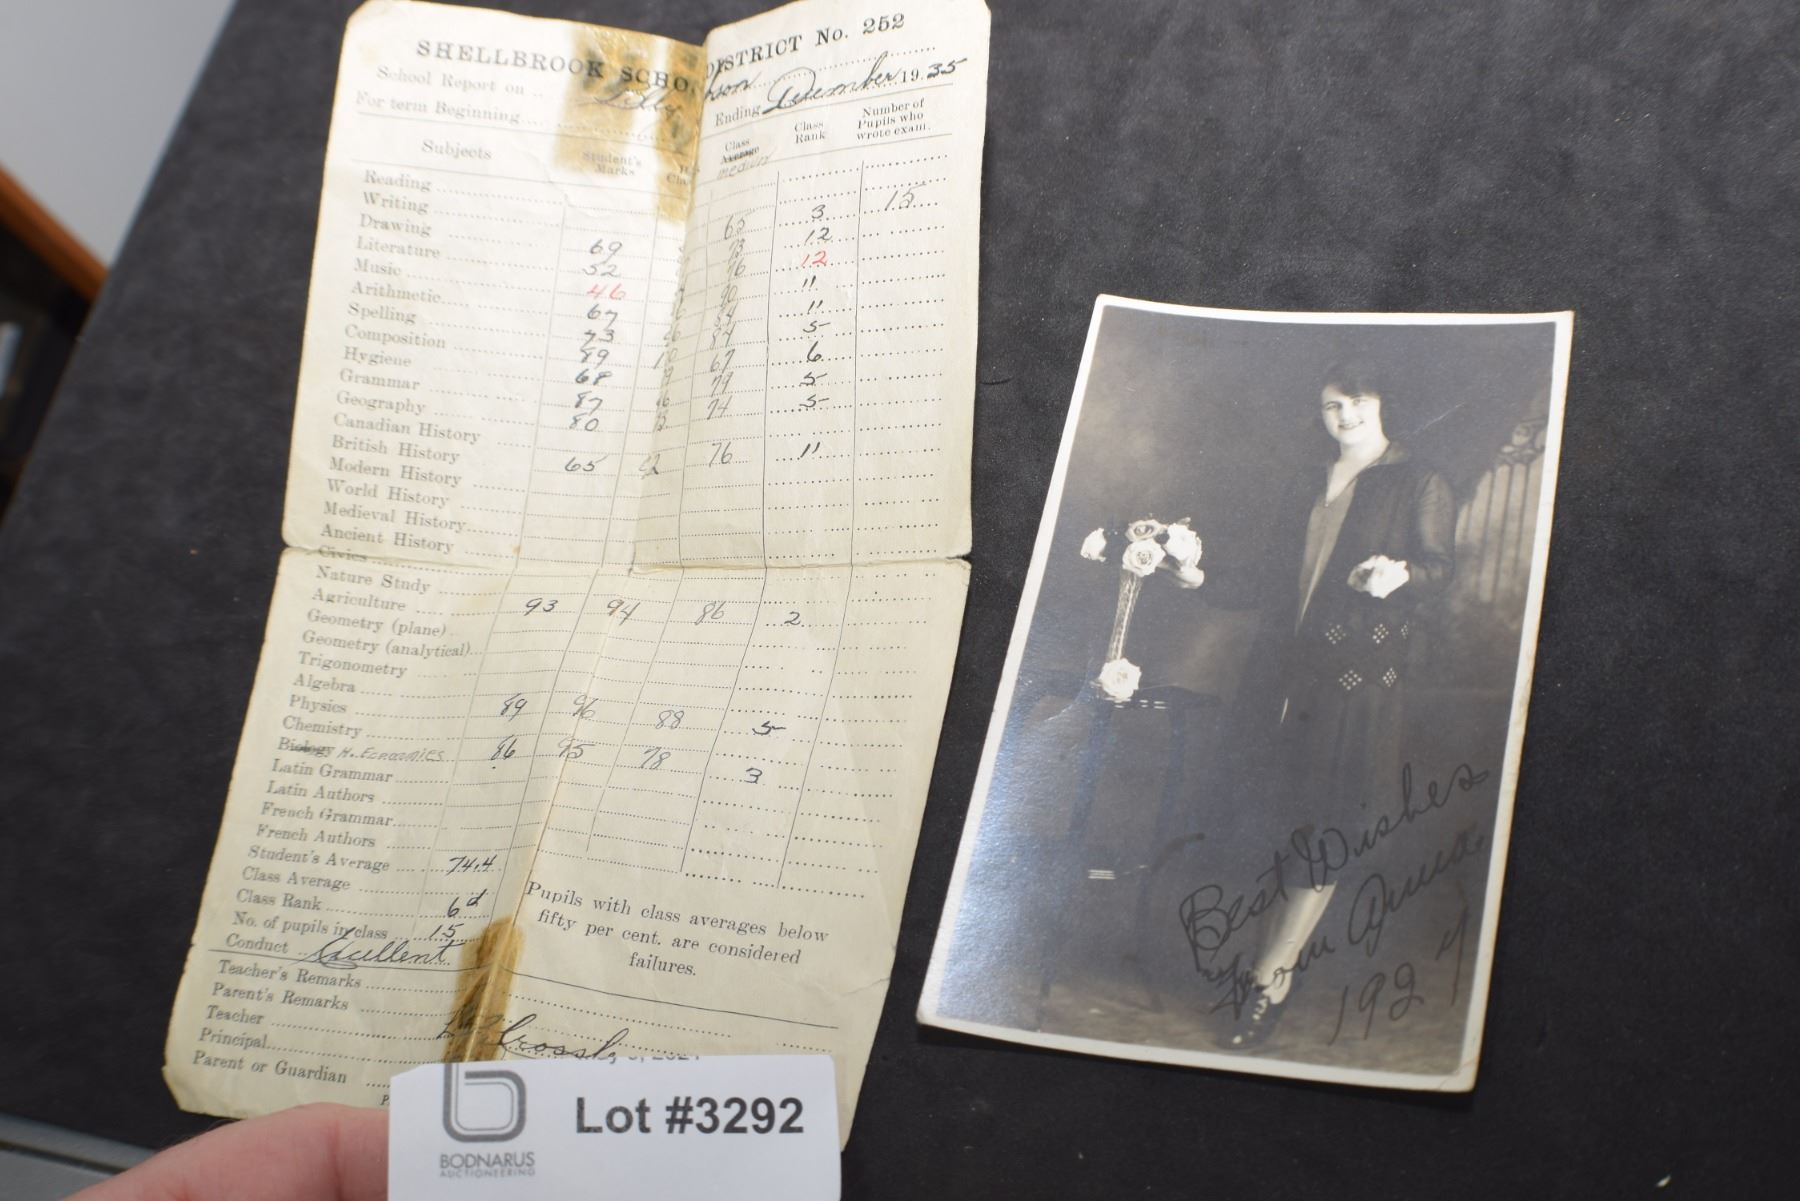 SHELLBROOK SCHO DISTRICT No. 252
School Report on .. Lilly
For term Beginning Ending December 1935
Subjects Student's Marks Class Average median Class Rank Number of Pupils who wrote exam.
Reading
Writing
Drawing
Literature 69 65 3 15
Music 52 12
Arithmetic 46 76 12
Spelling 67 90 11
Composition 73 11
Hygiene 89 84 5
Grammar 68 67 6
Geography 87 79 5
Canadian History 80 74 5
British History
Modern History 65 76 11
World History
Medieval History
Ancient History
Civics
Nature Study
Agriculture 93 94 86 2
Geometry (plane)
Geometry (analytical)
Trigonometry
Algebra
Physics 89 96 88 5
Chemistry
Biology H. Economics 86 95 78 3
Latin Grammar
Latin Authors
French Grammar
French Authors
Student's Average 74.4
Class Average
Class Rank 6
No. of pupils in class 15
Conduct Excellent
Pupils with class averages below
fifty per cent. are considered
failures.
Teacher's Remarks
Parent's Remarks
Teacher
Principal
Parent or Guardian
Lot #3292
BODNARUS
AUCTIONEERING
Best Wishes
From Anna.
1927